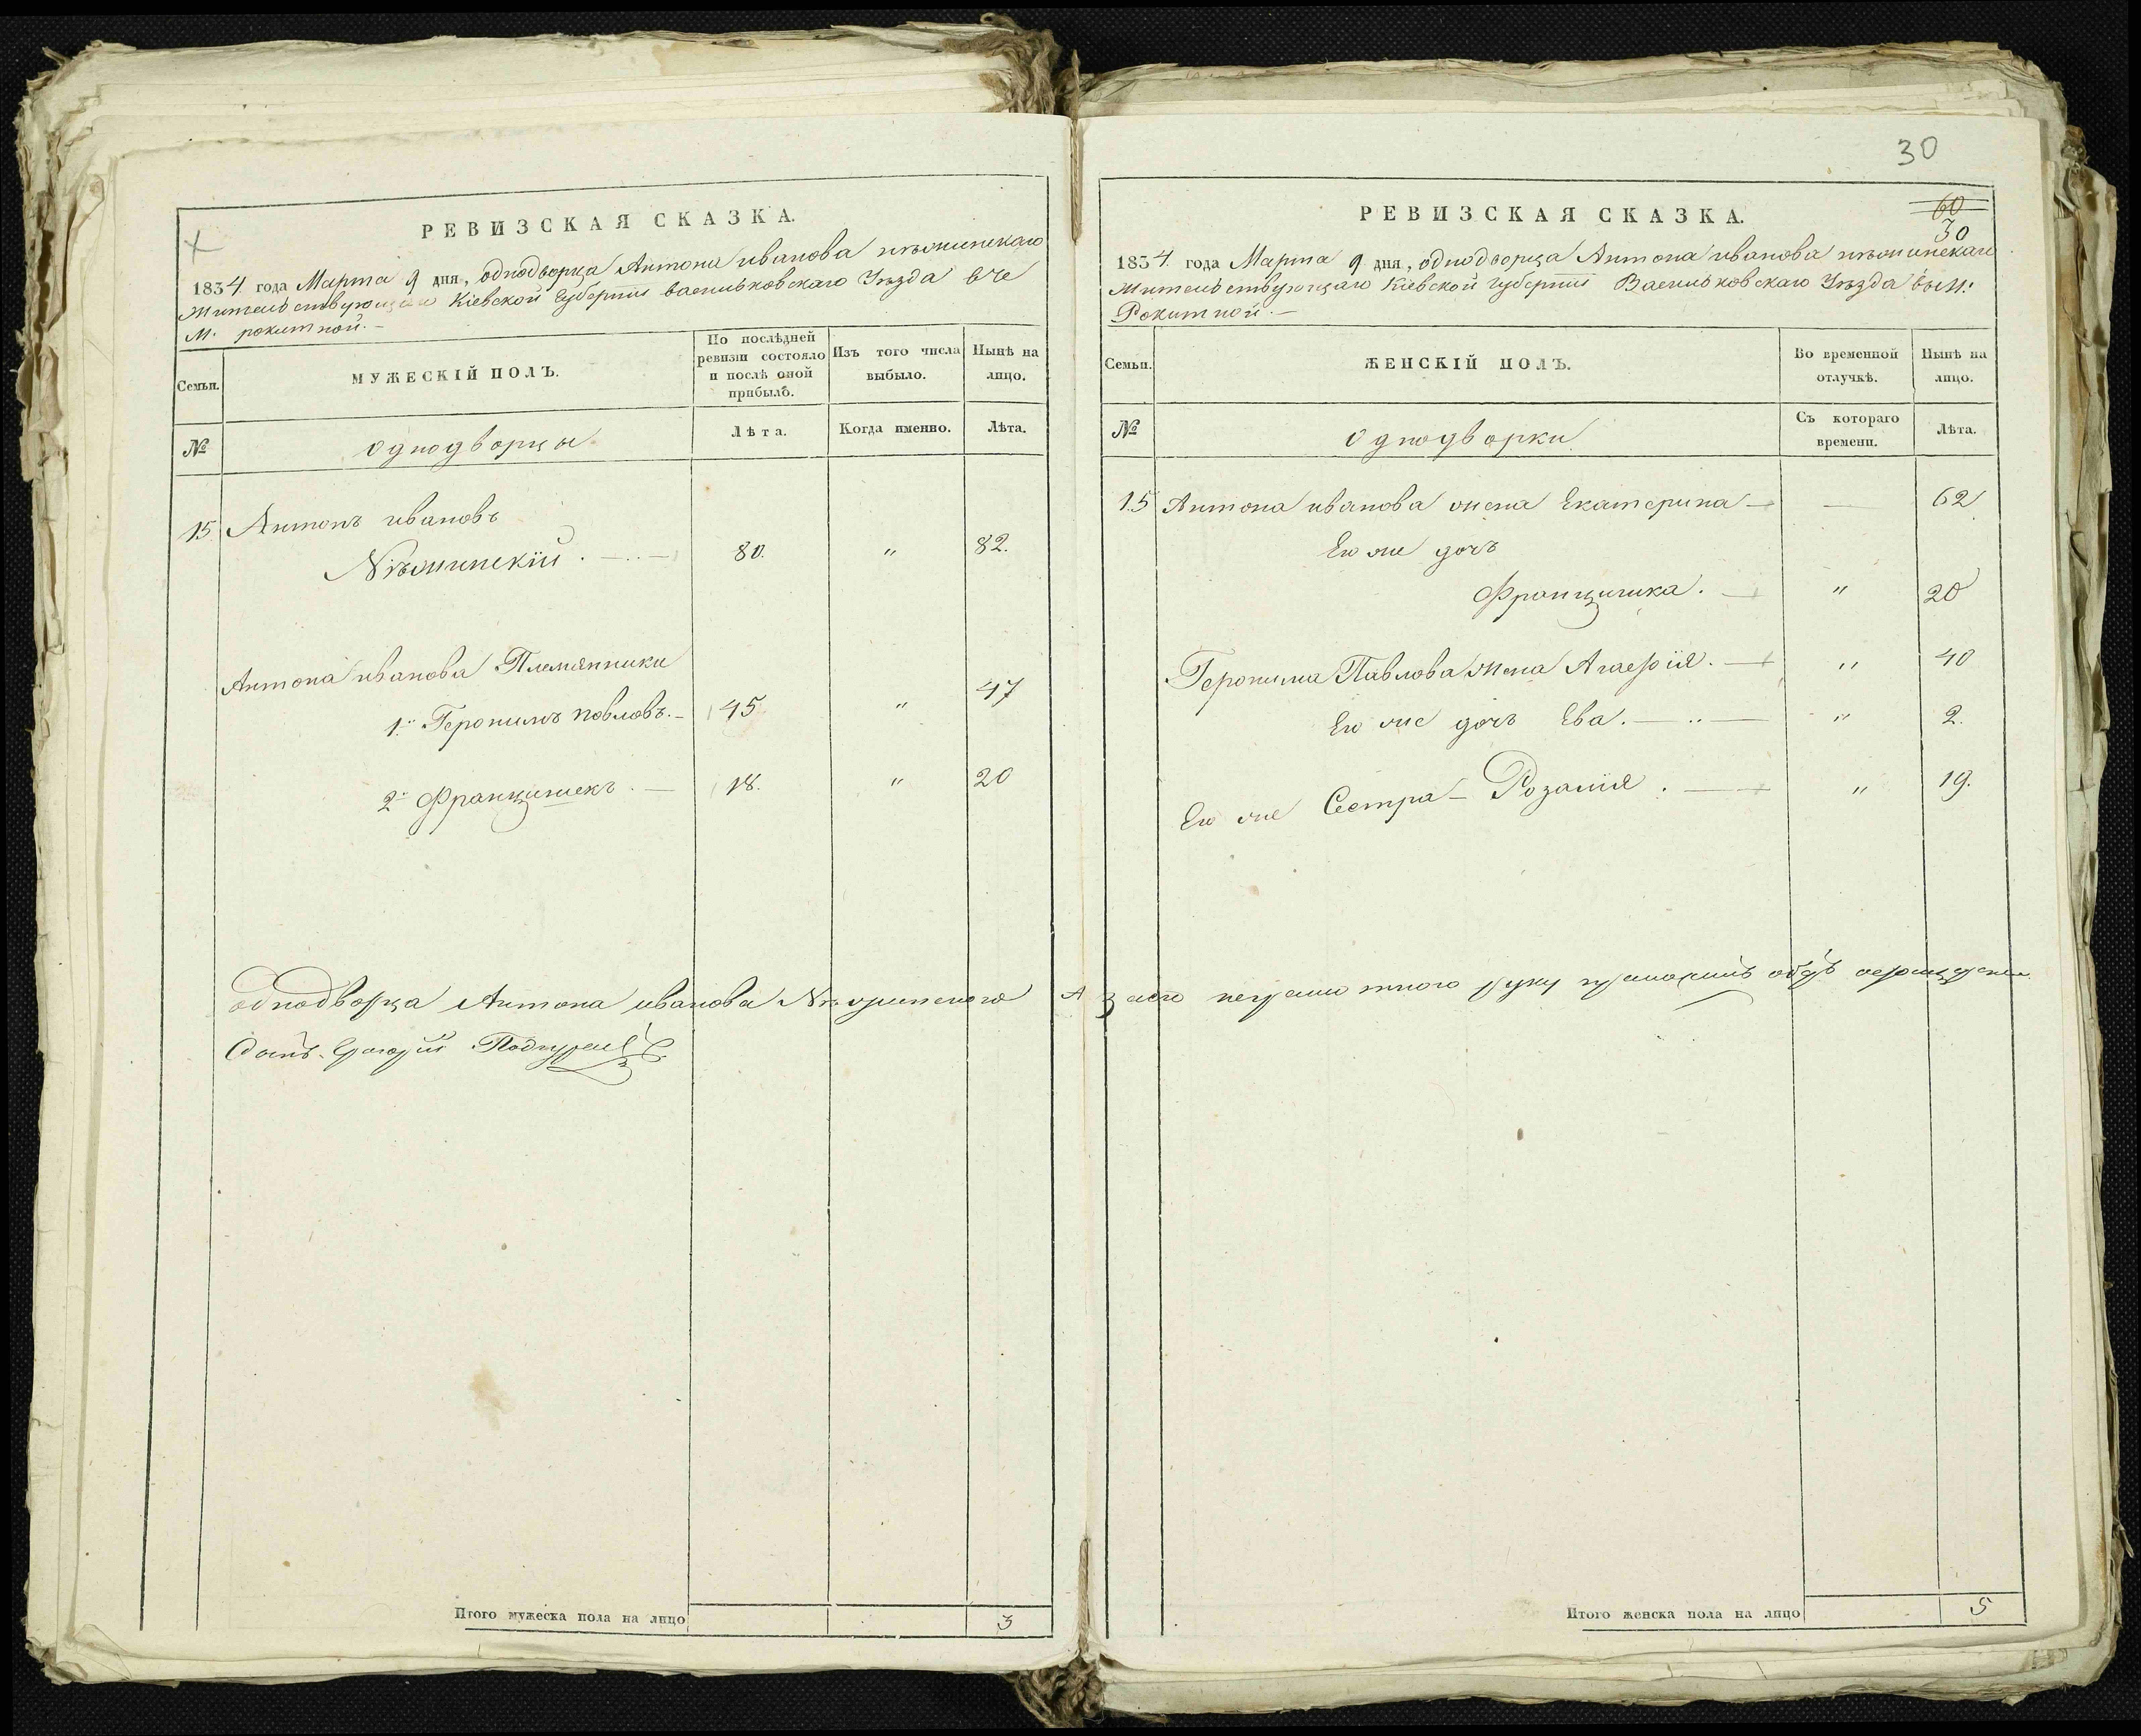 РЕВИЗСКАЯ СКАЗКА.
1834 года Марта 9 дня, однодворца Антона иванова нѣжинскаго
жительствующаго Кіевской Губерніи васильковскаго Уѣзда
М. рокитной.
Семьи.
МУЖЕСКІЙ ПОЛЪ.
По послѣдней ревизіи состояло и послѣ оной прибыло.
Изъ того числа выбыло.
Нынѣ на лицо.
№
однодворцы
Лѣта.
Когда именно.
Лѣта.
15 Антонъ ивановъ
Нѣжинскій. 80. " 82.
Антона иванова Племянники
1й Геронимъ повловъ. 45 " 47
2й Францишекъ. 18. " 20
однодворца Антона иванова
Итого мужеска пола на лицо 3
30
РЕВИЗСКАЯ СКАЗКА.
60
30
1834 года Марта 9 дня, однодворца Антона иванова нѣжинскаго
жительствующаго Кіевской губерніи Васильковскаго Уѣзда въ м:
Рокитной.
Семьи.
ЖЕНСКІЙ ПОЛЪ.
Во временной отлучкѣ.
Нынѣ на лицо.
№
однодворки
Съ котораго времени.
Лѣта.
15 Антона иванова жена Екатерина — 62
Ево же дочь
Францишка. " 20
Геронима Павлова жена " 40
Ево же дочь Ева. " 2.
Ево же Сестра Розалия. " 19.
руку
Итого женска пола на лицо 5